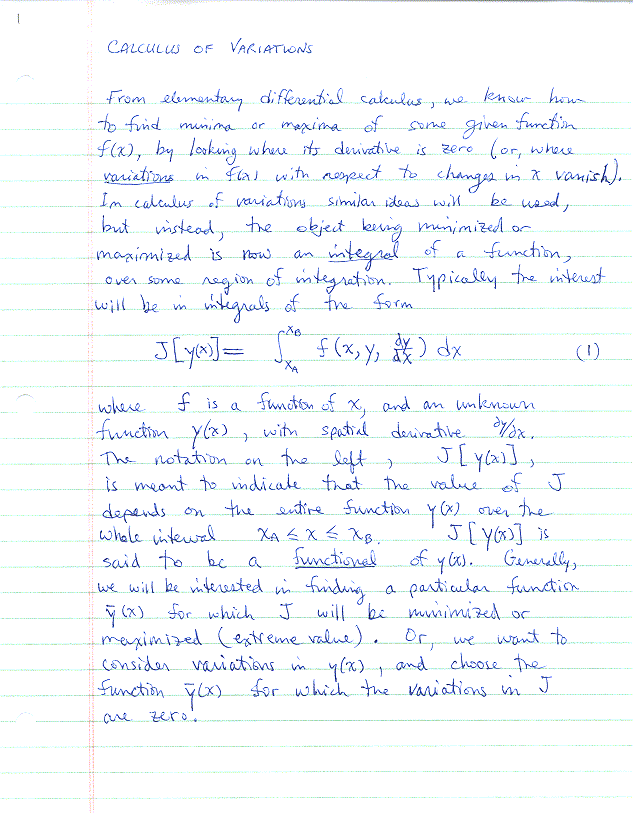 1
CALCULUS OF VARIATIONS
From elementary differential calculus, we know how
to find minima or maxima of some given function
f(x), by looking where its derivative is zero (or, where
variations in f(x) with respect to changes in x vanish).
In calculus of variations similar ideas will be used,
but instead, the object being minimized or
maximized is now an integral of a function,
over some region of integration. Typically the interest
will be in integrals of the form
J[y(x)] = ∫_{x_A}^{x_B} f(x, y, dy/dx) dx (1)
where f is a function of x, and an unknown
function y(x), with spatial derivative dy/dx.
The notation on the left, J[y(x)],
is meant to indicate that the value of J
depends on the entire function y(x) over the
whole interval x_A ≤ x ≤ x_B. J[y(x)] is
said to be a functional of y(x). Generally,
we will be interested in finding a particular function
ȳ(x) for which J will be minimized or
maximized (extreme value). Or, we want to
consider variations in y(x), and choose the
function ȳ(x) for which the variations in J
are zero.